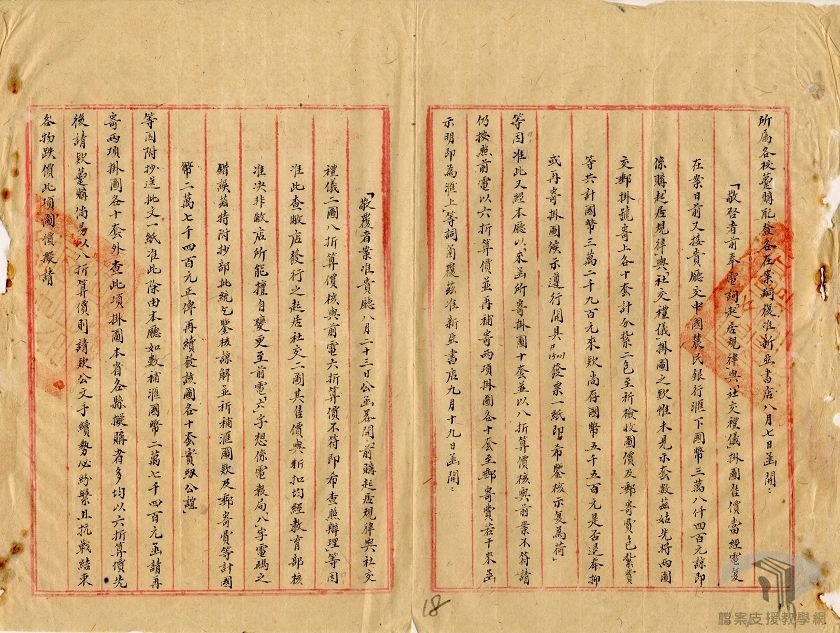 所屬各校暨購配發各在案詞後准新亞書店八月七日函開：
「敬啓者前奉電詢「起居規律」與「社交禮儀」掛圖售價當經電复
在案日前又接貴廳交中國農民銀行滙下國幣三萬八仟四百元諒即
係購起居規律與社交禮儀掛圖之欵惟未見示套數茲姑先將兩圖
交郵掛號寄上各十套計分紮二包至祈檢收圖價及郵寄費包紮費
等共計國幣三萬二千九百元來欵尚存國幣五千五百元是否退奉抑
或再寄掛圖候示遵行開具發票一紙即希鑒核示复為荷」
等因准此又經本廳以來函所寄掛圖十套並以八折算價核與前案不符請
仍按照前電以六折算價並再補寄兩項掛圖各十套至郵寄費若干來函
示明即為滙上「等詞函覆茲准新亞書店九月十九日函開：
「敬覆者案准貴廳八月二十三日公函畧開「前購起居規律與社交
禮儀二圖八折算價核與前電六折算價不符即希查照辦理」等因
准此查敝店發行之起居社交二圖其售價與折扣均經教育部核
准決非敝店所能擅自變更至前電「六」字想係電報局「八」字電碼之
錯誤茲特附抄部批統乞鑒核諒解並祈補滙圖欵及郵寄費等計國
幣二萬七千四百元正俾再續發該圖各十套實級公誼」
等因附抄送批文一紙准此除由本廳如數補滙國幣二萬七千四百元函請再
寄兩項掛圖各十套外查此項掛圖本省各縣擬購者多均以六折算價先
後請欵彙購倘易以八折算價則請欵公文手續勢必紛繁且抗戰結束
各物跌價此項圖價擬請
18
檔案支援教學網